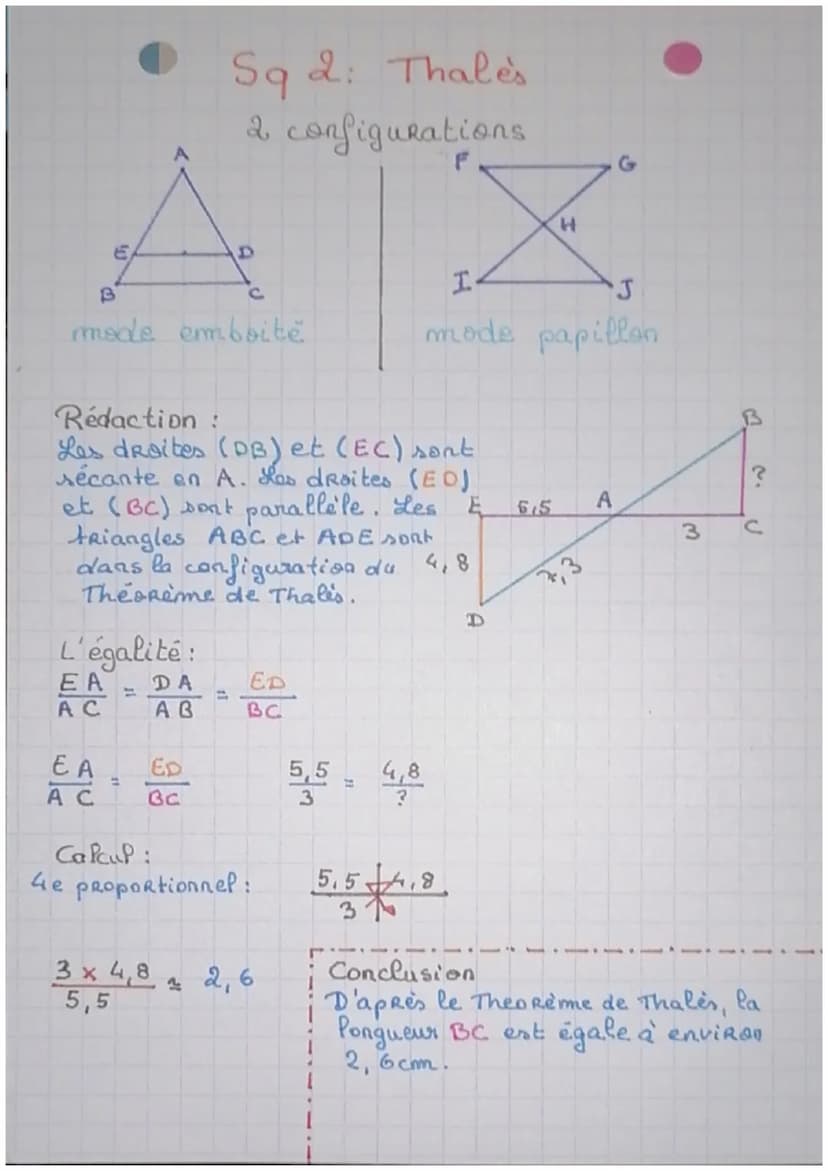 Sq 2: Thalès
2 configurations
A
E D
B C
mode emboité
F G
H
I J
mode papillon
Rédaction :
Les droites (DB) et (EC) sont
sécante en A. Les droites (ED)
et (BC) sont parallèle. Les
triangles ABC et ADE sont
dans la configuration du
Théorème de Thalès.
B
?
E 5,5 A
3 C
4,8
7,3
D
L'égalité :
EA/AC = DA/AB = ED/BC
EA/AC = ED/BC 5,5/3 = 4,8/?
Calcul :
4e proportionnel : 5,5 4,8
3
3 x 4,8 / 5,5 ≈ 2,6
Conclusion
D'après le Theorème de Thalès, la
longueur BC est égale à environ
2,6cm.